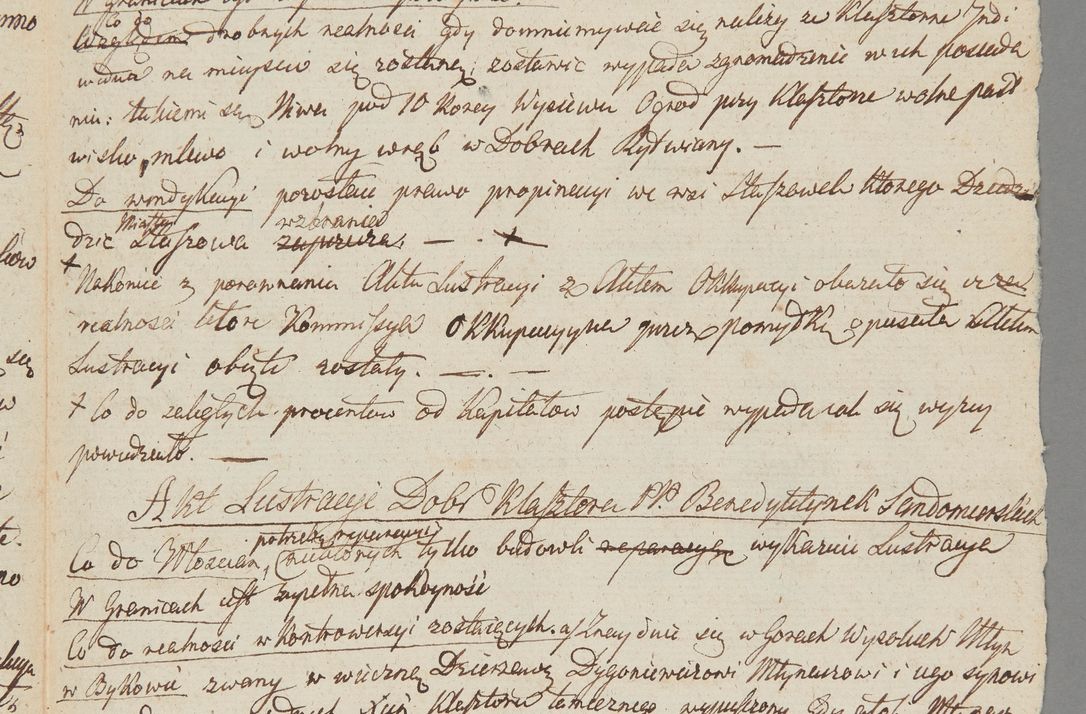 Co do
Względem drobnych realności gdy domniemywać się należy że Klasztorne Indi
widua na miejscu się zostaną, zostawić wypada zgromadzenie w ich posiada
niu: takiemi są Niwa pod 10 korcy Wysiewu Ogrod przy Klasztorze wolne past
wisko, mlewo i wolny wręb w Dobrach Rytwiany. —
Do windykacyi pozostaie prawo propinacyi we wsi Staszowek którego Dzie
Miasta wzbrania
dzic Staszowa — . +
+ Nakoniec z porownania Aktu Lustracyi z Aktem Okkupacyi okazało się że
realności które Kommissya Okkupacyjna przez pomyłkę opuściła Aktem
Lustracyi obięte zostały. — . —
+ Co do zaległych procentow od Kapitałow postąpić wypada jak się wyżey
powiedziało. —
Akt Lustracyi Dobr Klasztoru PP. Benedyktynek Sandomierskich
potrzebę reparacyi
Co do Włościan, niektorych tylko budowli reparacyą wykazuie Lustracya
W Granicach iest zupełna spokoyność
Co do realności w kontrowersyi zostaiących. a/ Znayduie się w Gorach Wysokich Młyn
w Bykowie zwany w wieczney Dzierżawie Młynarzowi i iego synowi
Klasztoru tamecznego wypuszczony